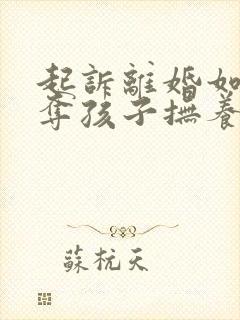 起訴離婚如
奪孩子撫養
蘇杭天